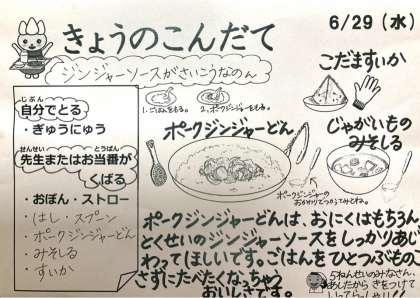 6/29（水）
きょうのこんだて
ジンジャーソースがさいこうなのん
こだますいか
じぶん
自分でとる
・ぎゅうにゅう
せんせい とうばん
先生またはお当番が
くばる
・おぼん・ストロー
・はし・スプーン
・ポークジンジャーどん
・みそしる
・すいか
1.ごはんをもる。
2.ポークジンジャーをもる。
ポークジンジャーどん
ポークジンジャーの
じゃがいもの
みそしる
ポークジンジャーどんは、おにくはもちろん、
とくせいのジンジャーソースをしっかりあじ
わってほしいです。ごはんをひとつぶものこ
さずにたべたくなっちゃう
おいしさです。
5ねんせいのみなさん
あしたから きをつけて
いってらっしゃい！